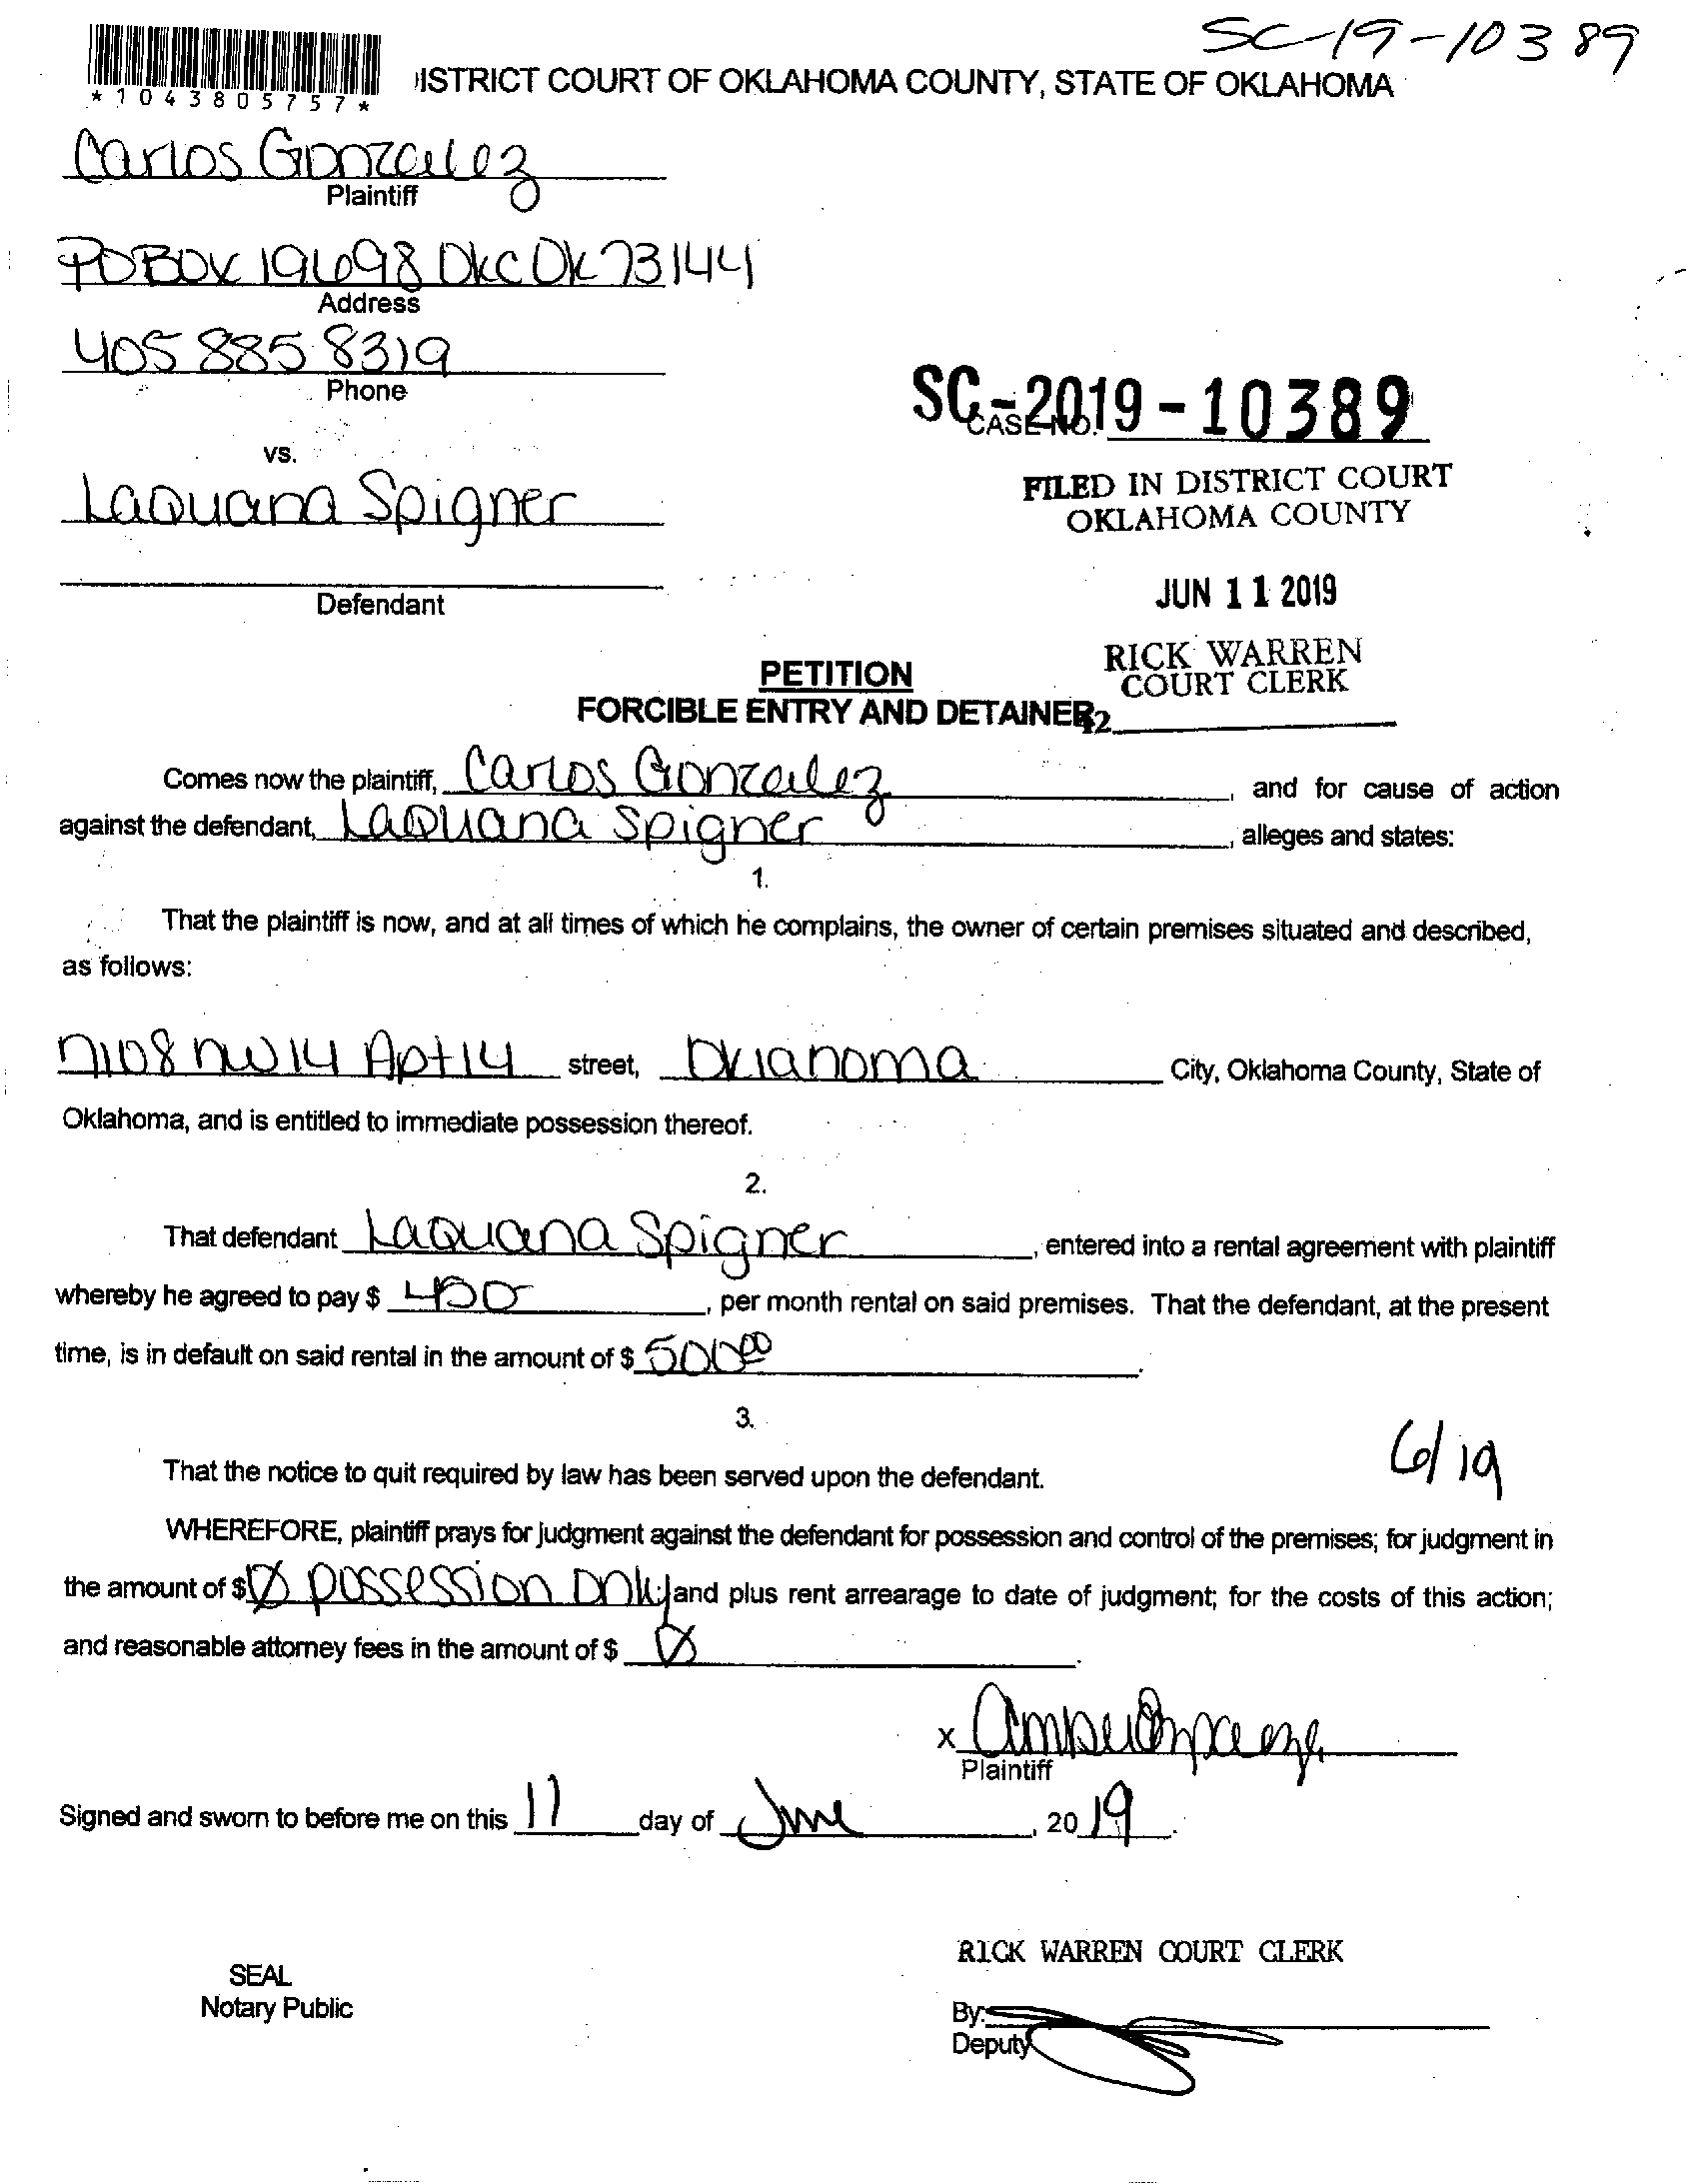 SC-19-10389
*1043805757*
ISTRICT COURT OF OKLAHOMA COUNTY, STATE OF OKLAHOMA
Carlos Gonzalez
Plaintiff
PO BOX 19698 OKC OK 73144
Address
405 885 8319
Phone
SC-2019-10389
CASE NO.
vs.
FILED IN DISTRICT COURT
OKLAHOMA COUNTY
LaQuana Spigner
JUN 11 2019
Defendant
RICK WARREN
COURT CLERK
PETITION
FORCIBLE ENTRY AND DETAINER
42
Comes now the plaintiff, Carlos Gonzalez, and for cause of action
against the defendant, LaQuana Spigner, alleges and states:
1.
That the plaintiff is now, and at all times of which he complains, the owner of certain premises situated and described,
as follows:
7108 NW 14 Apt 14 street, Oklahoma City, Oklahoma County, State of
Oklahoma, and is entitled to immediate possession thereof.
2.
That defendant LaQuana Spigner, entered into a rental agreement with plaintiff
whereby he agreed to pay $ per month rental on said premises. That the defendant, at the present
time, is in default on said rental in the amount of $ 500.00.
3.
6/19
That the notice to quit required by law has been served upon the defendant.
WHEREFORE, plaintiff prays for judgment against the defendant for possession and control of the premises; for judgment in
the amount of $ Ø possession only and plus rent arrearage to date of judgment; for the costs of this action;
and reasonable attorney fees in the amount of $ Ø.
X
Plaintiff
Signed and sworn to before me on this 11 day of June, 2019.
RICK WARREN COURT CLERK
SEAL
Notary Public
By:
Deputy